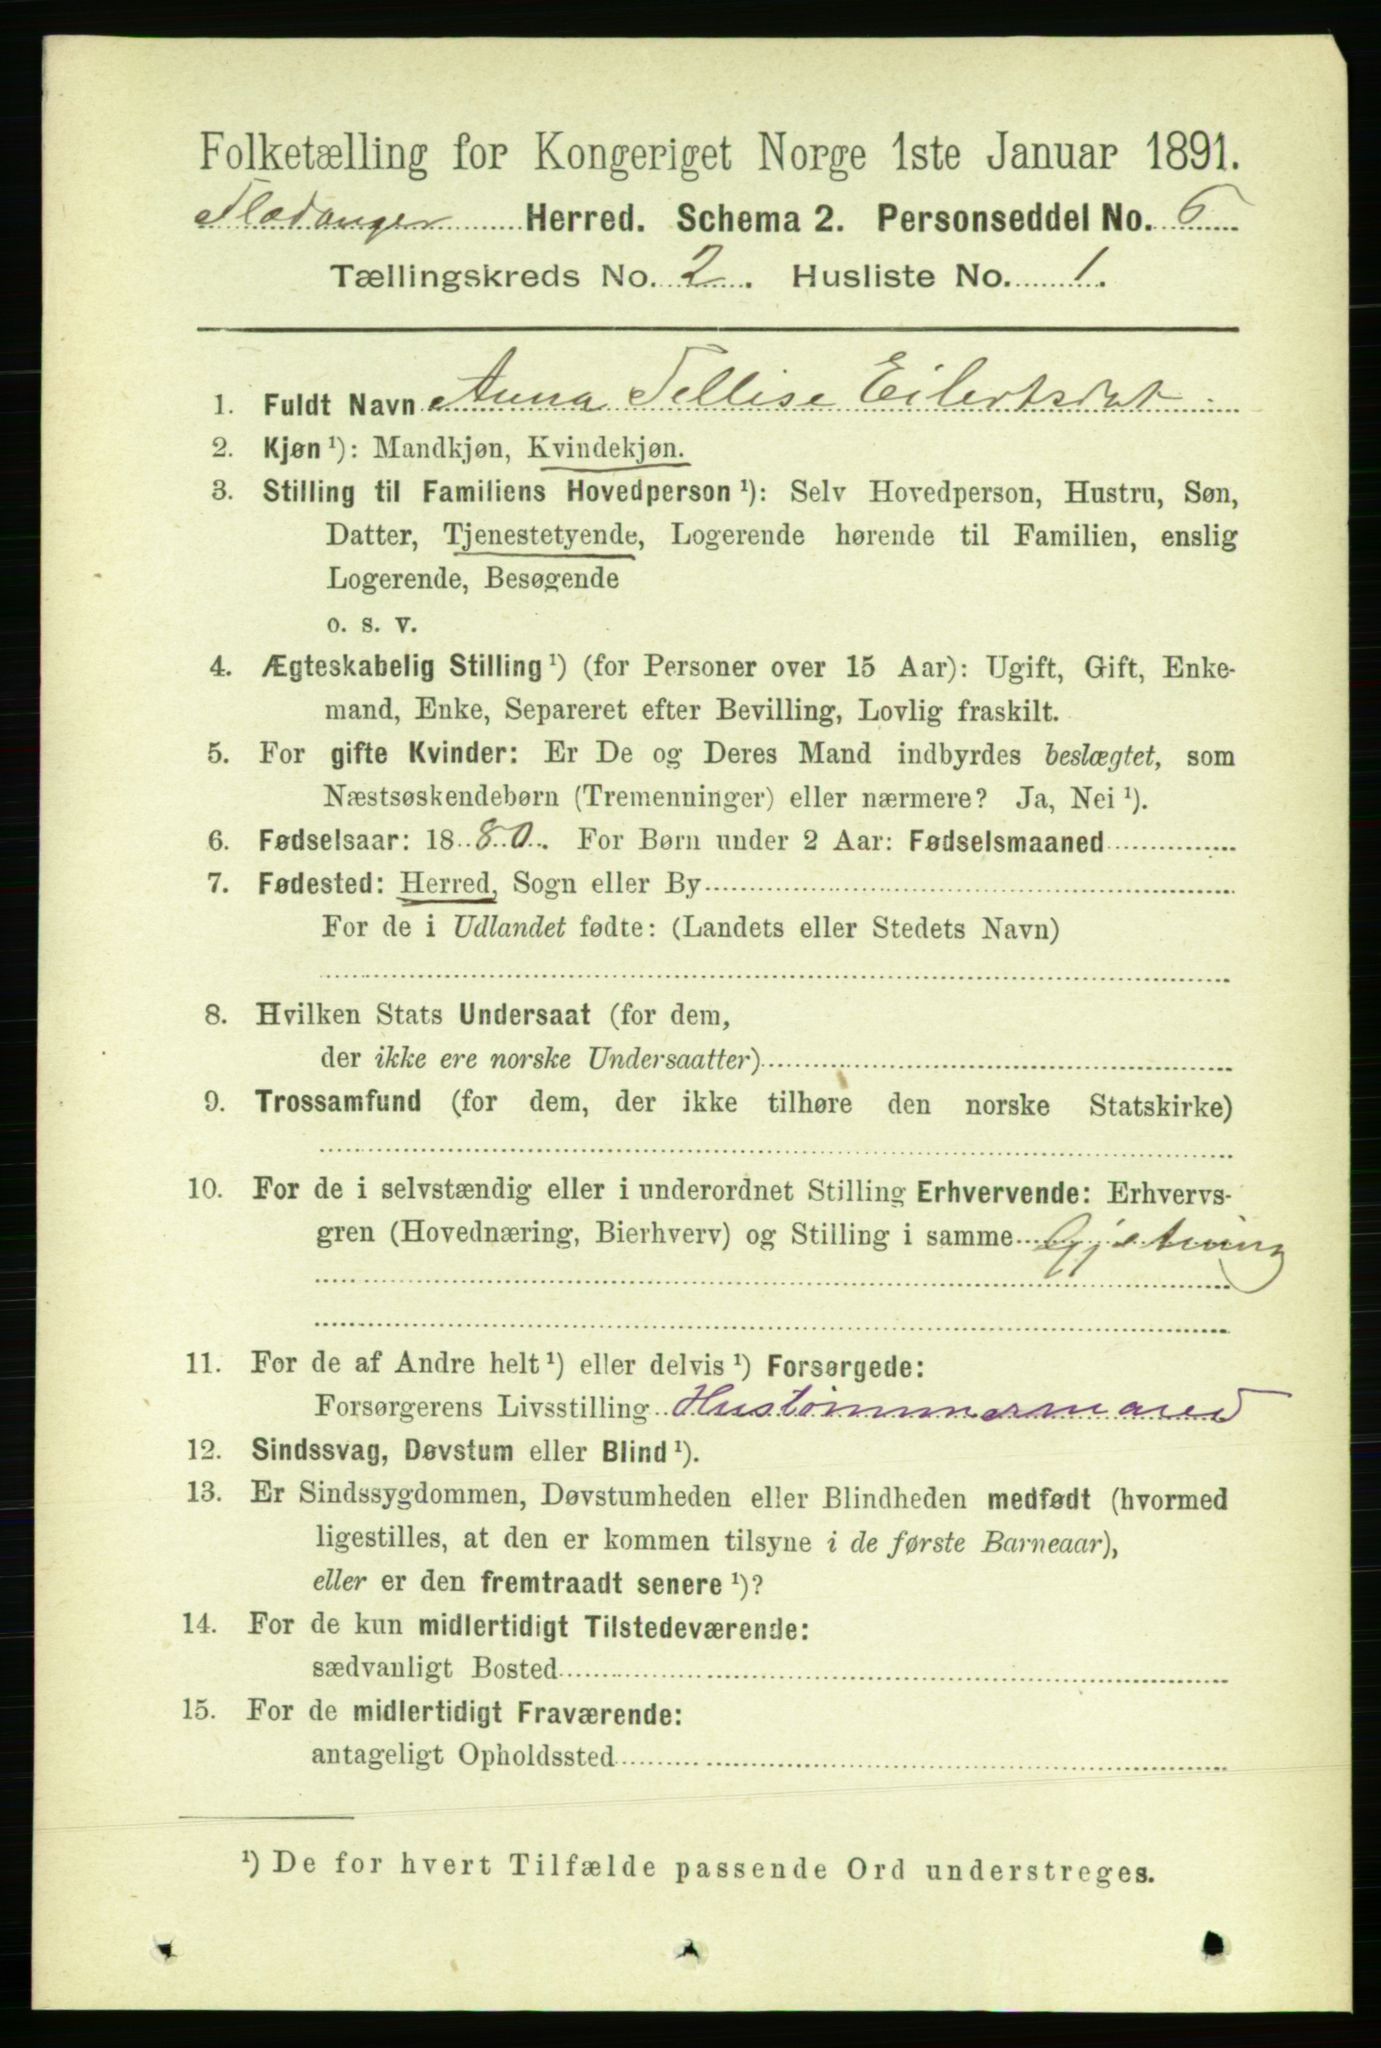 Folketælling for Kongeriget Norge 1ste Januar 1891.
Fladanger Herred. Schema 2. Personseddel No. 6
Tællingskreds No. 2. Husliste No. 1.
1. Fuldt Navn Anna Tellise Eilertsdat
2. Kjøn ¹): Mandkjøn, Kvindekjøn.
3. Stilling til Familiens Hovedperson ¹): Selv Hovedperson, Hustru, Søn,
Datter, Tjenestetyende, Logerende hørende til Familien, enslig
Logerende, Besøgende
o. s. v.
4. Ægteskabelig Stilling ¹) (for Personer over 15 Aar): Ugift, Gift, Enke-
mand, Enke, Separeret efter Bevilling, Lovlig fraskilt.
5. For gifte Kvinder: Er De og Deres Mand indbyrdes beslægtet, som
Næstsøskendebørn (Tremenninger) eller nærmere? Ja, Nei ¹).
6. Fødselsaar: 1880. For Børn under 2 Aar: Fødselsmaaned
7. Fødested: Herred, Sogn eller By
For de i Udlandet fødte: (Landets eller Stedets Navn)
8. Hvilken Stats Undersaat (for dem,
der ikke ere norske Undersaatter)
9. Trossamfund (for dem, der ikke tilhøre den norske Statskirke)
10. For de i selvstændig eller i underordnet Stilling Erhvervende: Erhvervs-
gren (Hovednæring, Bierhverv) og Stilling i samme Gjetning
11. For de af Andre helt ¹) eller delvis ¹) Forsørgede:
Forsørgerens Livsstilling Hustømmermand
12. Sindssvag, Døvstum eller Blind ¹).
13. Er Sindssygdommen, Døvstumheden eller Blindheden medfødt (hvormed
ligestilles, at den er kommen tilsyne i de første Barneaar),
eller er den fremtraadt senere ¹)?
14. For de kun midlertidigt Tilstedeværende:
sædvanligt Bosted
15. For de midlertidigt Fraværende:
antageligt Opholdssted
¹) De for hvert Tilfælde passende Ord understreges.